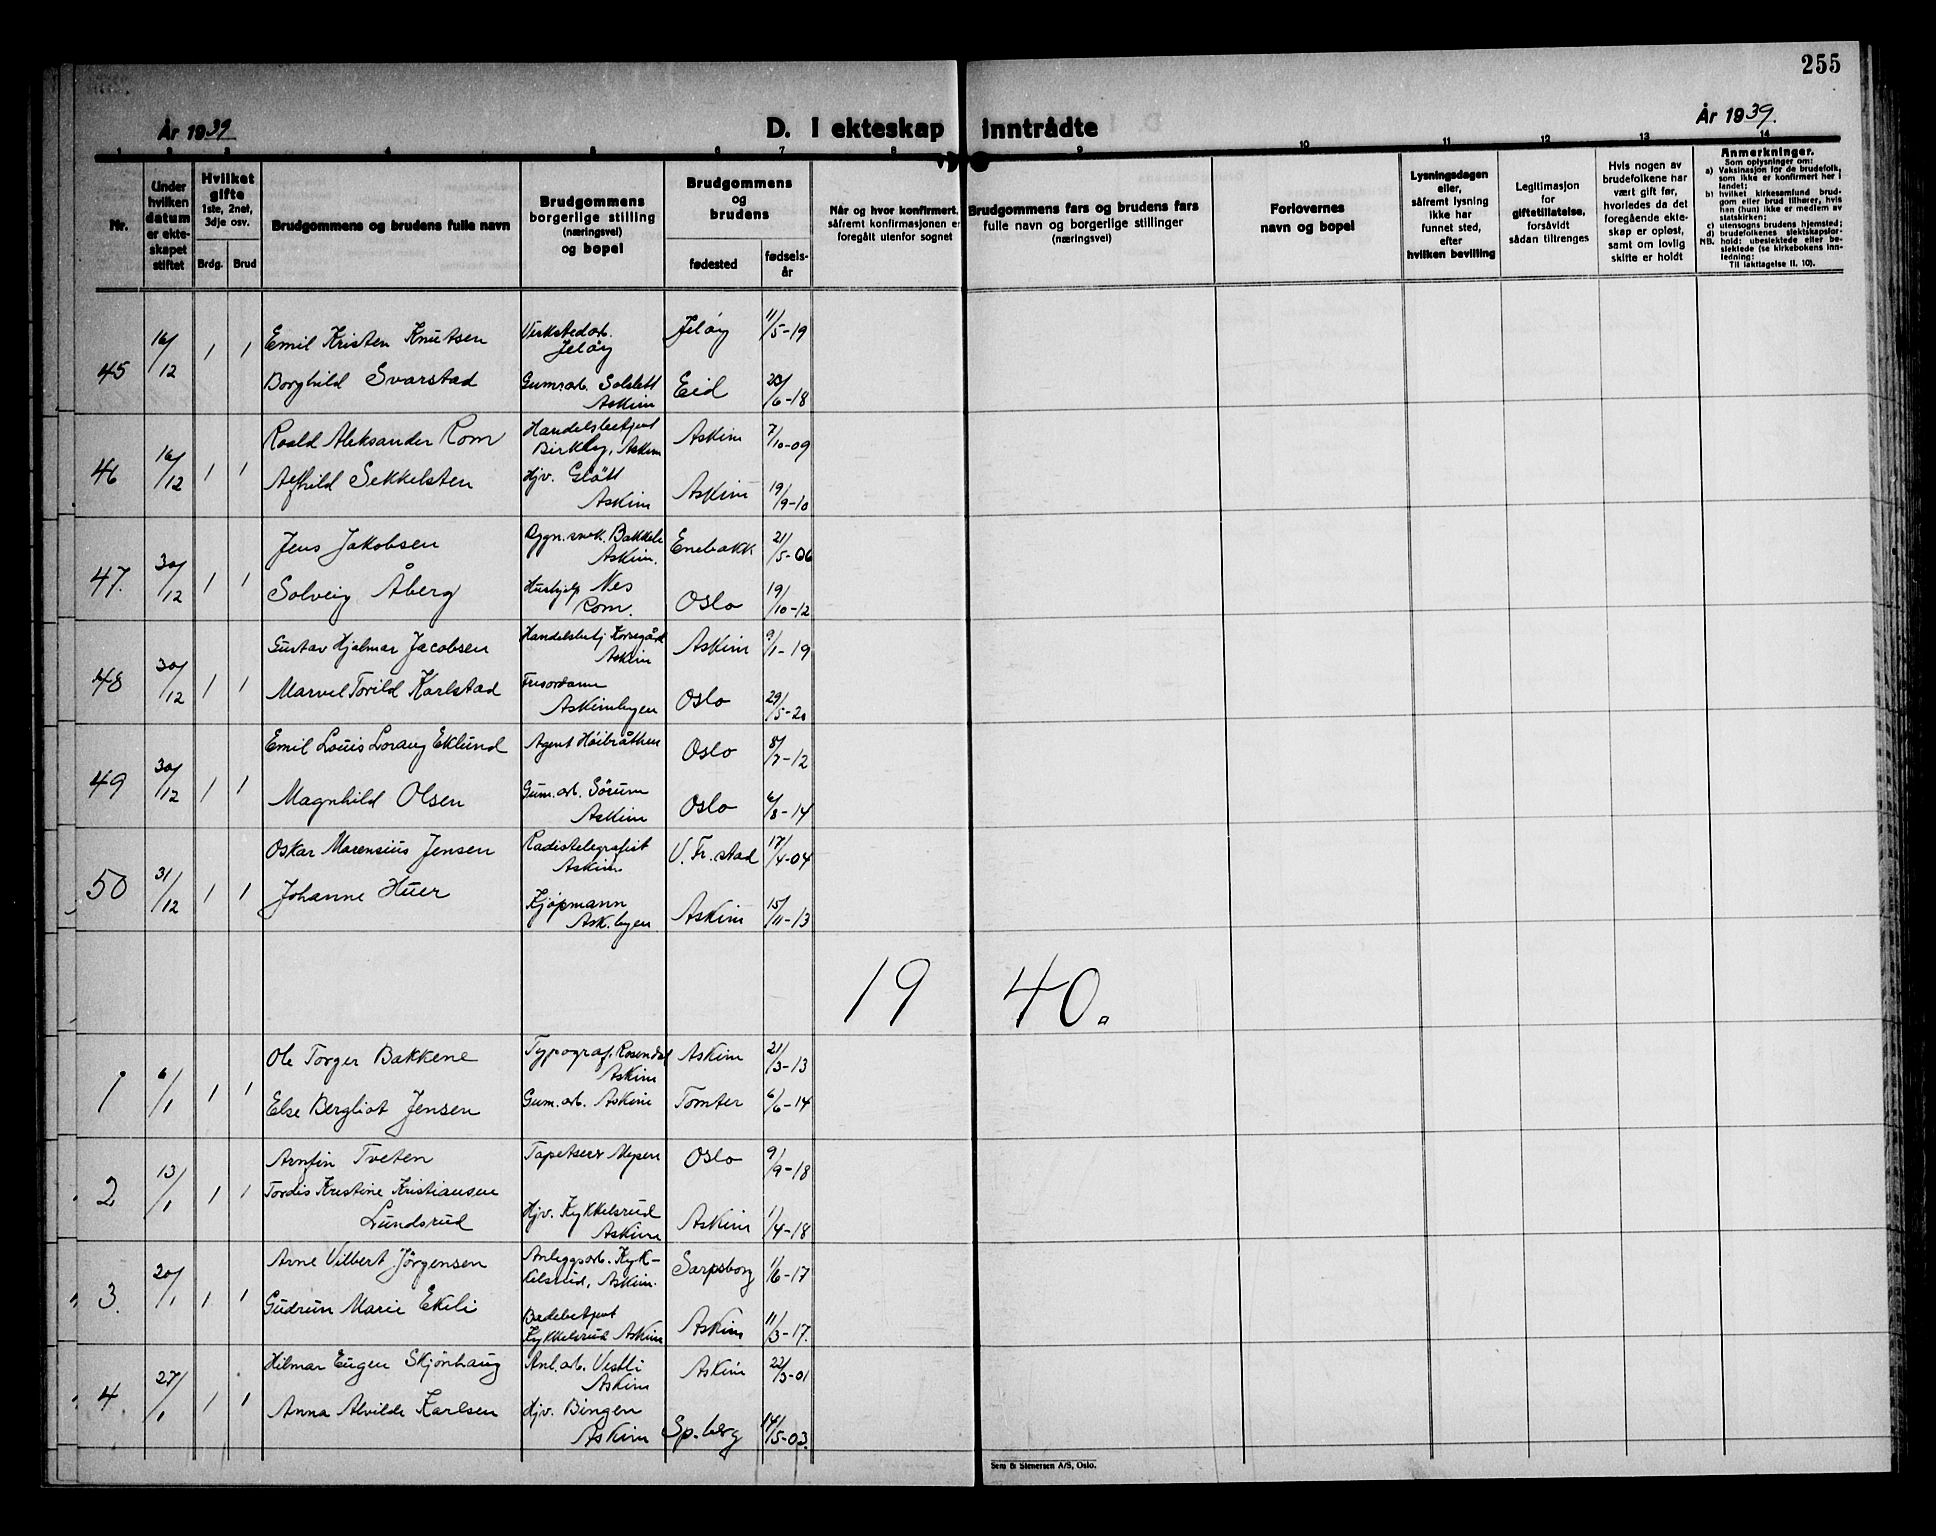 255
År 1939
D. I ekteskap inntrådte
År 1939.
1 2 3 4 5 6 7 8 9 10 11 12 13 14
Nr.
Under hvilken datum er ekteskapet stiftet
Hvilket gifte
1ste, 2net, 3dje osv.
Brdg. Brud
Brudgommens og brudens fulle navn
Brudgommens borgerlige stilling (næringsvei) og bopel
Brudgommens og brudens
fødested
fødselsår
Når og hvor konfirmert, såfremt konfirmasjonen er foregått utenfor sognet
Brudgommens fars og brudens fars fulle navn og borgerlige stillinger (næringsvei)
Forlovernes navn og bopel
Lysningsdagen eller, såfremt lysning ikke har funnet sted, efter hvilken bevilling
Legitimasjon for giftetillatelse, forsåvidt sådan tiltrenges
Hvis nogen av brudefolkene har vært gift før, hvorledes da det foregående ekteskap er opløst, samt om lovlig skifte er holdt
Anmerkninger.
Som oplysninger om:
a) Vaksinasjon for de brudefolk, som ikke er konfirmert her i landet;
b) hvilket kirkesamfund brudgom eller brud tilhører, hvis han (hun) ikke er medlem av statskirken;
c) utensogns brudens hjemsted;
d) brudefolkenes slektskapsforhold: ubeslektede eller beslektede (se kirkebokens innledning:
NB. Til iakttagelse II. 10).
45 16/12 1 1
Emil Kristen Knutsen Verkstedarb. Jeløy Jeløy 11/5-19
Borghild Svarstad Gum.arb. Solslett Askim Eid 23/6-18
46 16/12 1 1
Roald Aleksander Rom Handelsbetjent Birkby, Askim Askim 7/10-09
Sekkelsten Hjv. Glött Askim Askim 19/9-10
47. 30/12 1 1
Jens Jakobsen Bygn.snek. Bakkeli Askim. Enebakk 21/5-06
Solveig Åberg Hushjelp Nes Rom. Oslo 19/10-12
48 30/12 1 1
Gustav Hjalmar Jacobsen Handelsbetj Korsegård Askim Askim 9/1-19
Marvel Torild Karlstad Frisordame Askimbyen Oslo 29/5-20
49 30/12 1 1
Emil Louis Lorang Eklund Agent Høibråthen Oslo 8/7-12
Magnhild Olsen Gum.arb. Sørum Askim Oslo 6/8-14
50 31/12 1 1
Oskar Marensius Jensen Radiotelegrafist Askim V. Fr.stad 17/4-04
Johanne Huer Kjøpmann Ask.byen. Askim 15/11-13
19 40.
1 6/1 1 1
Ole Torger Bakkene Typograf, Rosendal Askim Askim 21/3-13
Else Bergliot Jensen Gum.arb. Askim Tomter 6/6-14
2 13/1 1 1
Arnfin Tveten Tapetserer Mysen Oslo 9/9-18
Tordis Kristine Kristiansen
Lundsrud Hjv. Kykkelsrud Askim Askim 1/4-18
3. 20/1 1 1
Arne Vilbert Jörgensen Anleggsarb. Kykkelsrud, Askim. Sarpsborg 1/6-17
Gudrun Marie Ekeli Badebetjent Kykkelsrud Askim Askim 11/3-17.
4. 27/1 1 1
Hilmar Eugen Skjönhaug Anl.arb. Vestli Askim Askim 22/3-01
Anna Alvilde Karlsen Hjv. Bingen Askim Sp.berg 14/5-03.
Sem & Stenersen A/S, Oslo.